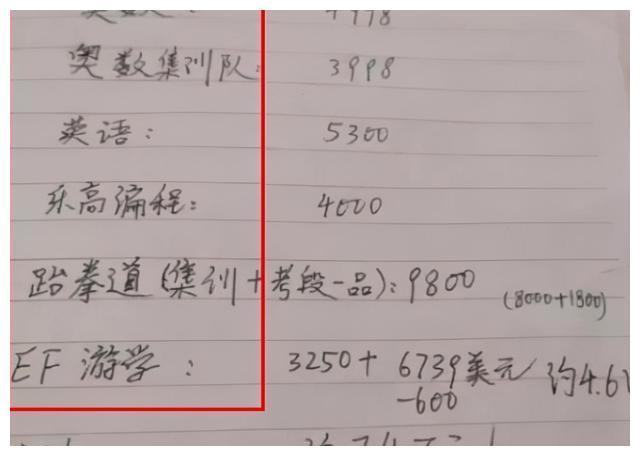 奥数集训队: 3998
英语: 5300
乐高编程: 4000
跆拳道(集训+考段一品): 9800 (8000+1800)
EF 游学: 3250+ 6739美元 约4.6
-600